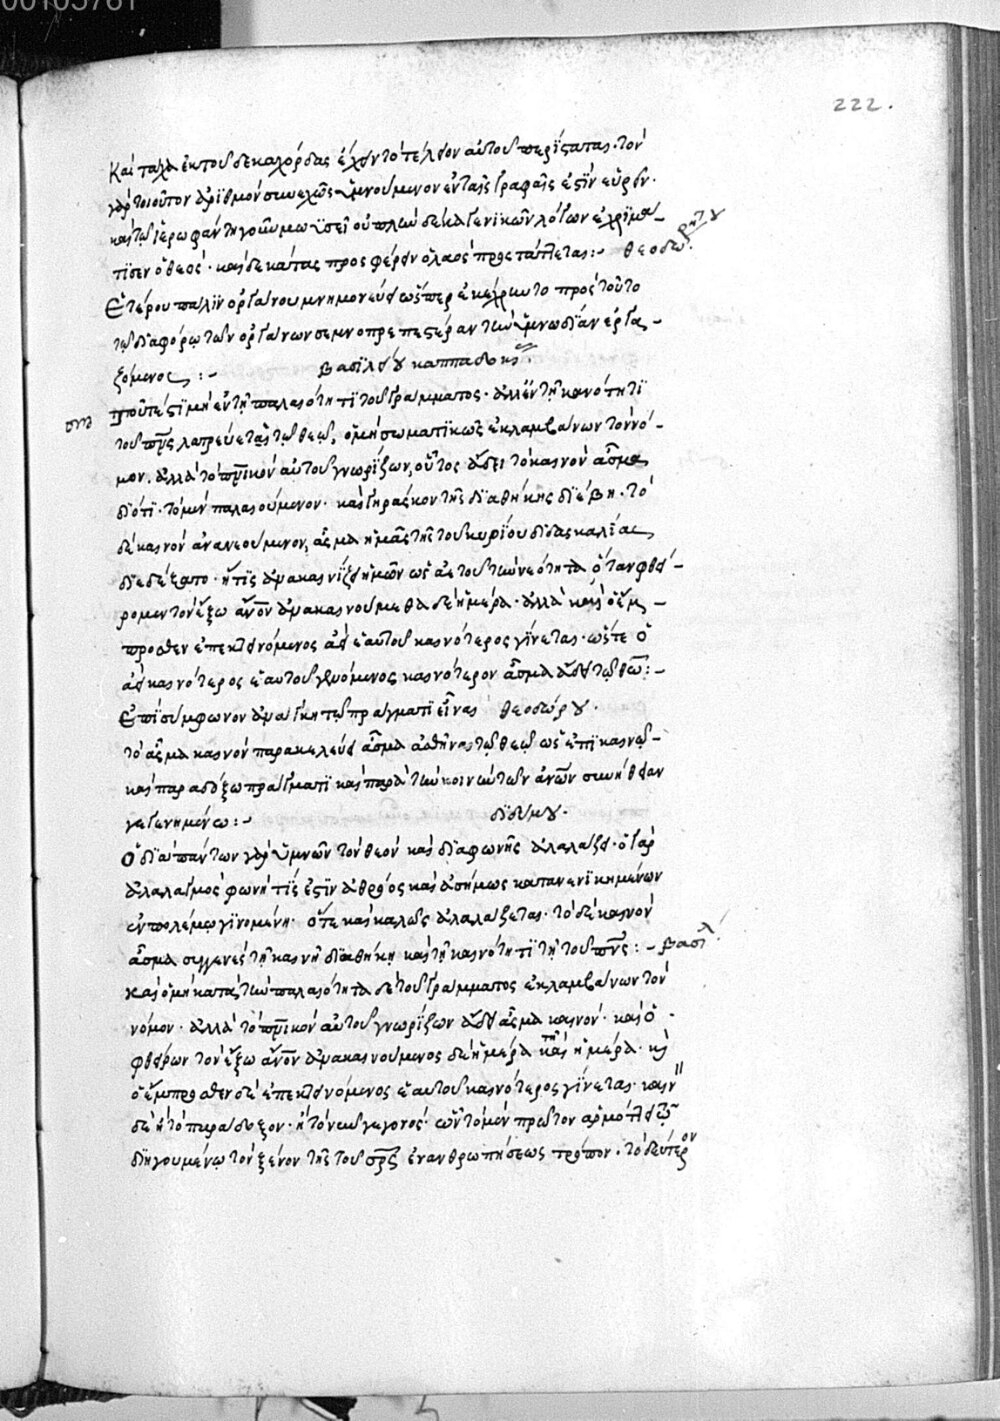 00105781
222.
καὶ τάχα ἐκ τοῦ δεκαχόρδας ἔχειν τὸ τέλειον αὐτοῦ περιΐσταται· τὸν
γὰρ τοιοῦτον ἀριθμὸν συνεχῶς ὑμνούμενον ἐν ταῖς γραφαῖς ἐστὶν εὑρεῖν·
καὶ τῷ ἱεροφάντῃ γοῦν μωϋσεῖ ὁ πλῶν δέκα γενικῶν λόγων ἐχρημά-
τισεν ὁ θεός· καὶ δεκάτας προσφέρειν ὁ λαὸς προετάττεται:- θεοδω
ρήτου
Ἑτέρου πάλιν ὀργάνου μνημονεύει ὥσπερ ἐκέχρητο πρὸς τοῦτο
τῷ διαφόρῳ τῶν ὀργάνων σεμνοπρεπεστέραν τὴν ὑμνωδίαν ἐργα-
ζόμενος:- βασιλείου καππαδοκίας
Ἥπου τί ἐστι μὴ ἐν τῇ παλαιότητι τοῦ γράμματος· ἀλλ' ἐν τῇ καινότητι
τοῦ πνς λατρεύεται τῷ θεῷ, ὁ μὴ σωματικῶς ἐκλαμβάνων τὸν νό-
μον, ἀλλὰ τὸ πνικὸν αὐτοῦ γνωρίζων, οὗτος ἄδει τὸ καινὸν ἆσμα
διότι τὸ μὲν παλαιούμενον· καὶ γηράσκον τῆς διαθήκης διέβη· τὸ
δὲ καινὸν ἀνανεούμενον, ἆσμα ἡμᾶς τῆς τοῦ κυρίου διδασκαλίας
διεδέξατο· ἥτις ἀνακαινίζει ἡμῶν ὡς ἀετοῦ τὴν νεότητα ὅταν φθεί-
ρομεν τὸν ἔξω ἄνον ἀνακαινούμεθα δὲ ἡμέρα· ἀλλὰ καὶ ὁ ἔμ-
προσθεν ἐπεκτεινόμενος ἀεὶ ἑαυτοῦ καινότερος γίνεται· ὥστε ὁ
ἀεὶ καινότερος ἑαυτοῦ γενόμενος καινότερον ἆσμα ἄδει τῷ θῶ:-
Ἐπισύμφωνον ἀνάγκη τῷ πράγματι εἶναι θεοδώρου·
τὸ ἆσμα καινὸν παρακελεύει ἆσμα ἀσθῆναι τῷ θεῷ ὡς ἐπὶ καινῷ-
καὶ παραδόξω πράγματι καὶ παρὰ τὴν κοινὴν τῶν ἀνῶν συνήθειαν
γεγενημένω:- διδύμου·
Ὁ διὰ πάντων γὰρ ὑμνῶν τὸν θεὸν καὶ διὰ φωνῆς ἀλαλάζει· ὁ γὰρ
ἀλαλαγμὸς φωνή τίς ἐστὶν ἀθρόος καὶ ἀσήμως κατανενικημένων
ἐν πολέμῳ γινομένη· ὅτε καὶ καλῶς ἀλαλάζεται· τὸ δὲ καινὸν
ἆσμα συγγενὲς τῇ καινῇ διαθήκῃ καὶ τῇ καινότητι τῇ τοῦ πνς:- βασιλ
καὶ ὁ μὴ κατὰ τὴν παλαιότητα δὲ τοῦ γράμματος ἐκλαμβάνων τὸν
νόμον· ἀλλὰ τὸ πνικὸν αὐτοῦ γνωρίζων ἄδει ἆσμα καινόν· καὶ ὁ
φθείρων τὸν ἔξω ἄνον ἀνακαινούμενος δὲ ἡμέρα καὶ ἡμέρα· κὶ
ὁ ἔμπροσθεν δὲ ἐπεκτεινόμενος ἑαυτοῦ καινότερος γίνεται· καιν
δὲ ἢ τὸ παράδοξον· ἢ τὸ νεῦ γεγονός· ὧν τὸ μὲν πρῶτον ἁρμόττει τῷ
διηγουμένῳ τὸν ξένον τῆς τοῦ σρς ἐνανθρωπήσεως τρόπον· τὸ δεύτερον